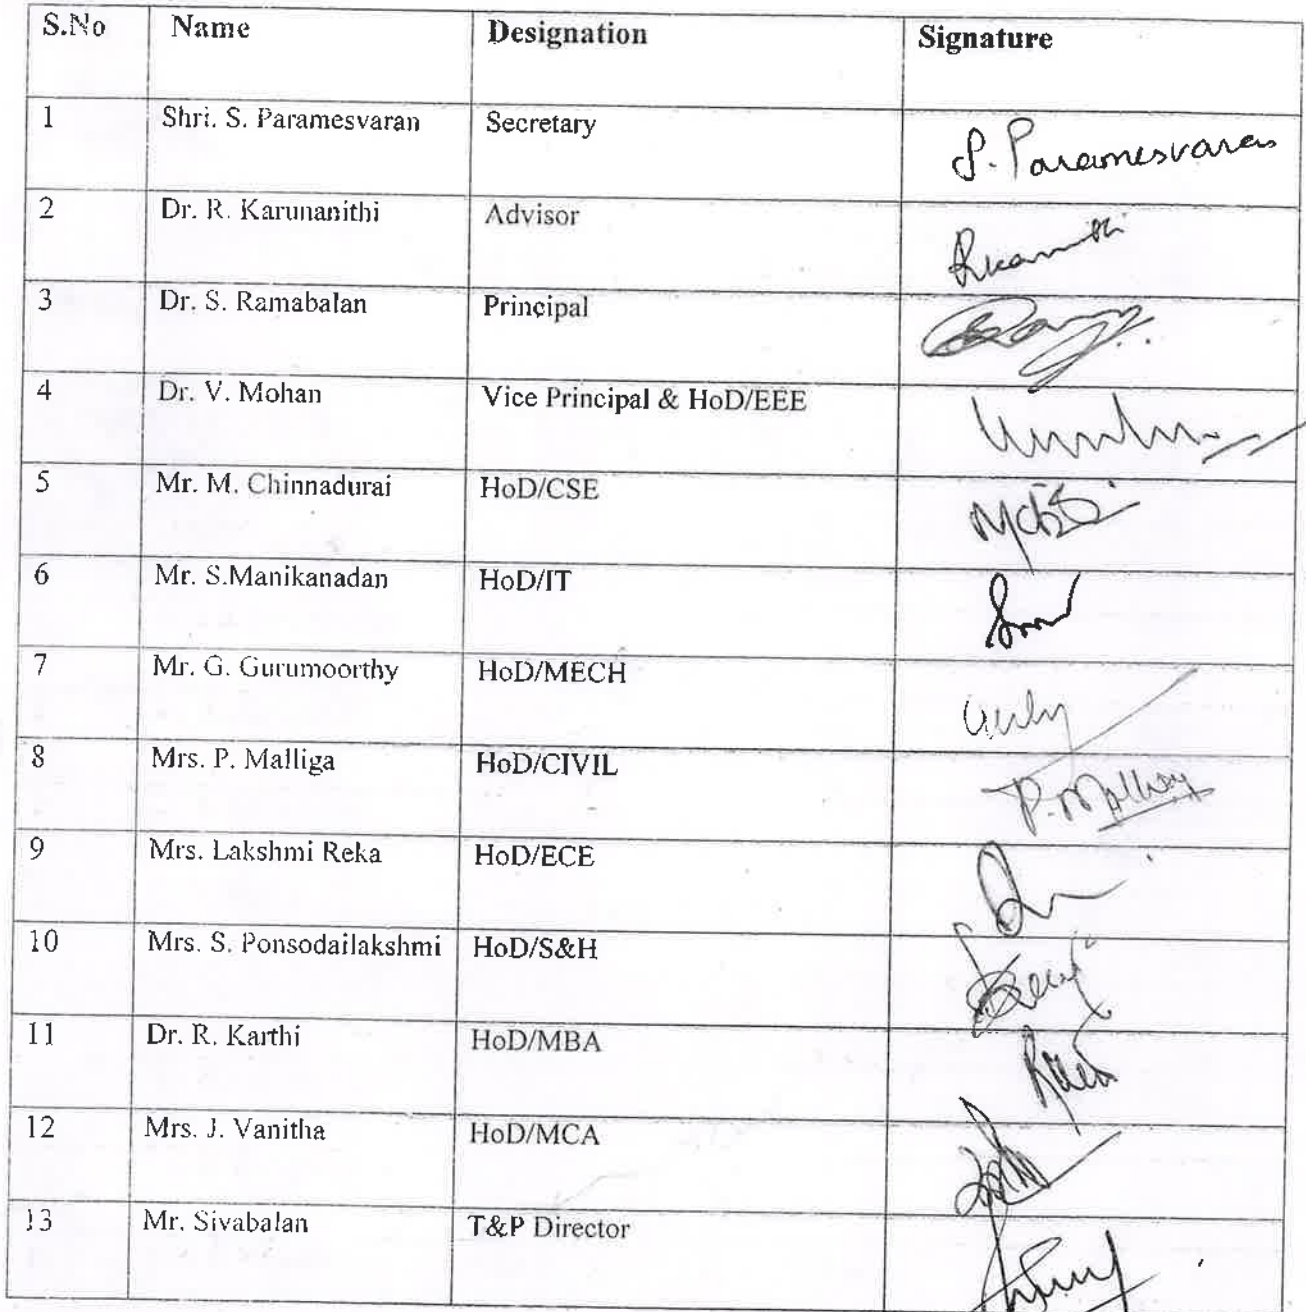 S.No Name Designation Signature
1 Shri. S. Paramesvaran Secretary S. Paramesvaran
2 Dr. R. Karunanithi Advisor
3 Dr. S. Ramabalan Principal
4 Dr. V. Mohan Vice Principal & HoD/EEE
5 Mr. M. Chinnadurai HoD/CSE
6 Mr. S.Manikanadan HoD/IT
7 Mr. G. Gurumoorthy HoD/MECH
8 Mrs. P. Malliga HoD/CIVIL P. Malliga
9 Mrs. Lakshmi Reka HoD/ECE
10 Mrs. S. Ponsodailakshmi HoD/S&H
11 Dr. R. Karthi HoD/MBA
12 Mrs. J. Vanitha HoD/MCA
13 Mr. Sivabalan T&P Director